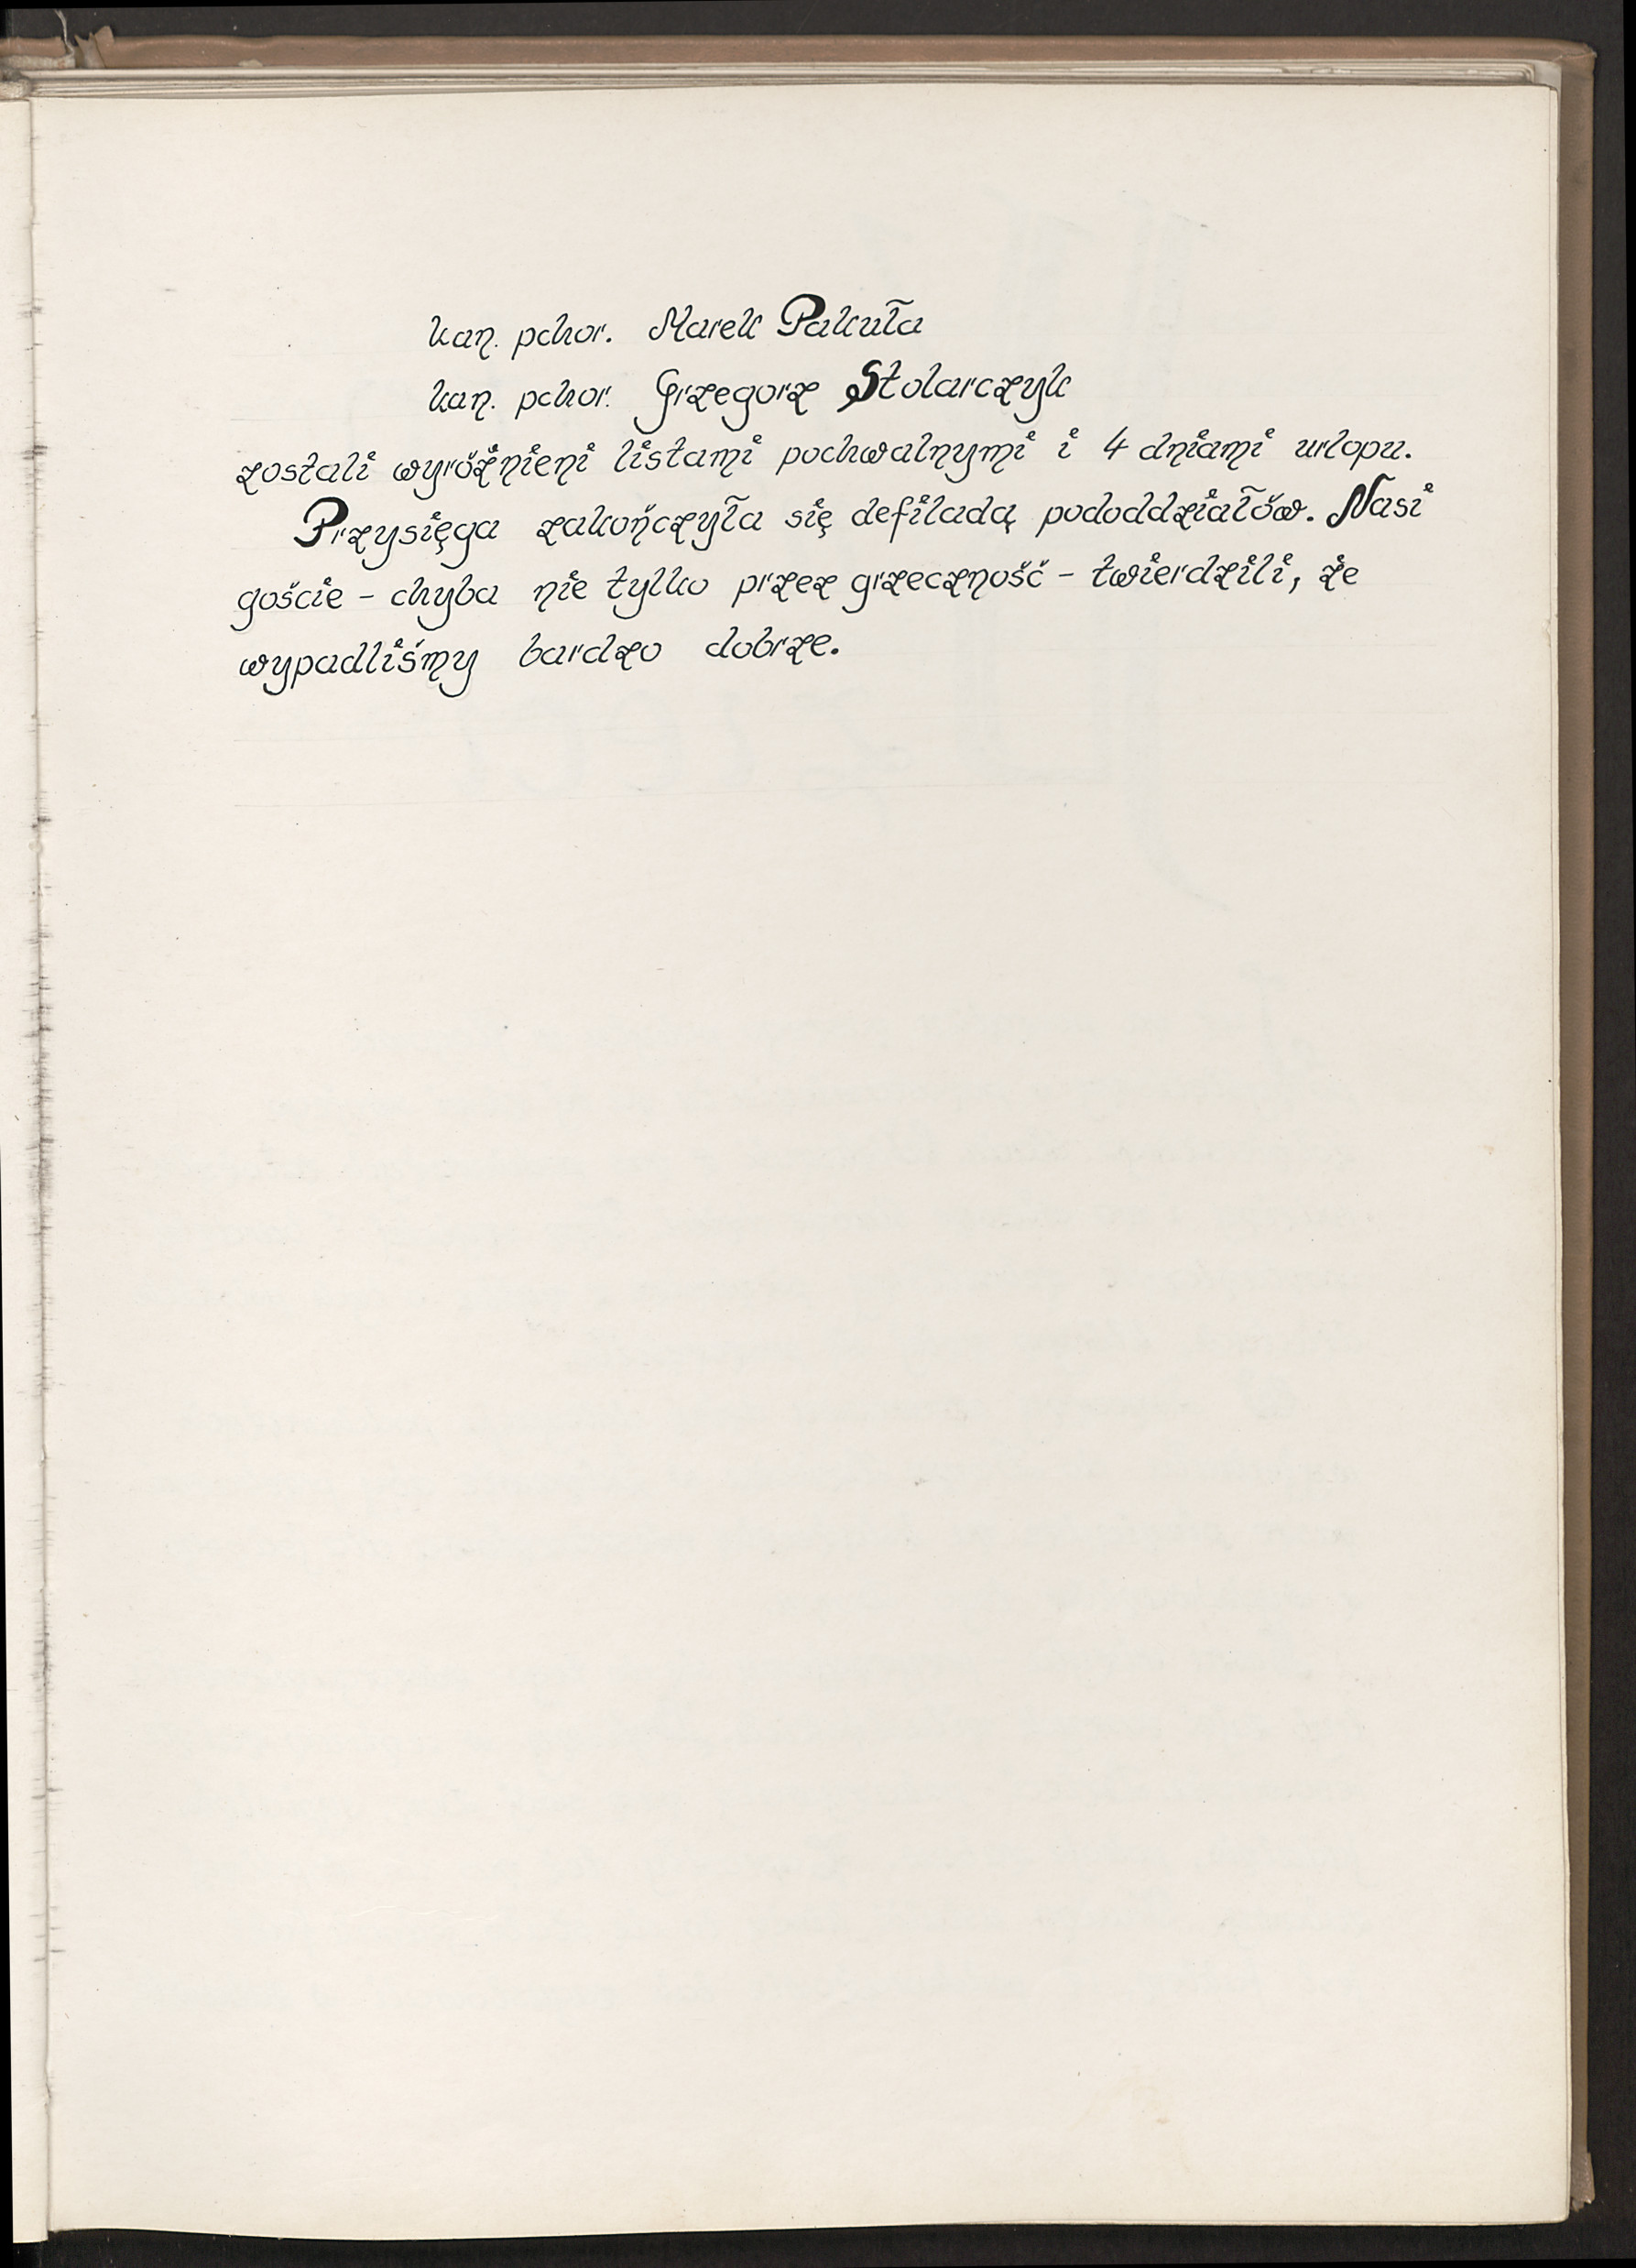 kan. pchor. Marek Pakuła
kan. pchor. Grzegorz Stolarczyk
zostali wyróżnieni listami pochwalnymi i 4 dniami urlopu.
Przysięga zakończyła się defiladą pododdziałów. Nasi
goście - chyba nie tylko przez grzeczność - twierdzili, że
wypadliśmy bardzo dobrze.